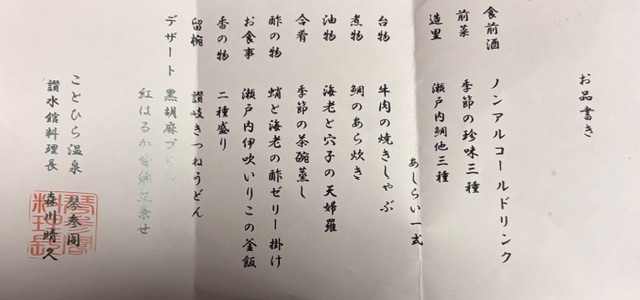 お品書き
食前酒 ノンアルコールドリンク
前菜 季節の珍味三種
造里 瀬戸内鯛他三種
あしらい一式
台物 牛肉の焼きしゃぶ
煮物 鯛のあら炊き
油物 海老と穴子の天婦羅
合肴 季節の茶碗蒸し
酢の物 蛸と海老の酢ゼリー掛け
お食事 瀬戸内伊吹いりこの釜飯
香の物 二種盛り
留椀 讃岐きつねうどん
デザート 黒胡麻プ
紅はるか
せ
ことひら温泉 琴参閣
讃水館料理長 森川晴久